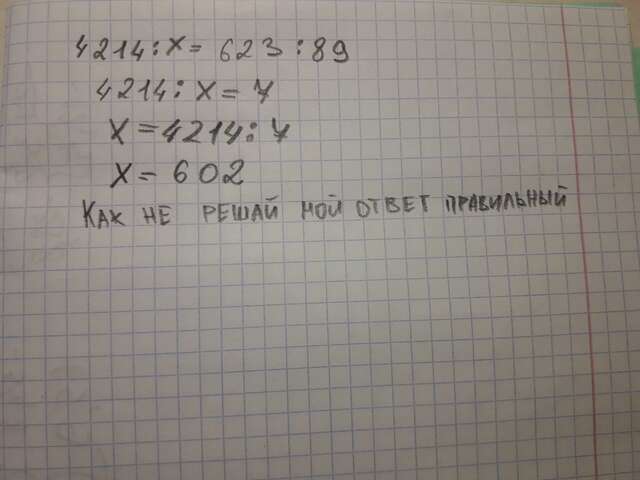 4214:x= 623:89
4214: x= 7
x=4214:7
x= 602
КАК НЕ РЕШАЙ МОЙ ОТВЕТ ПРАВИЛЬНЫЙ